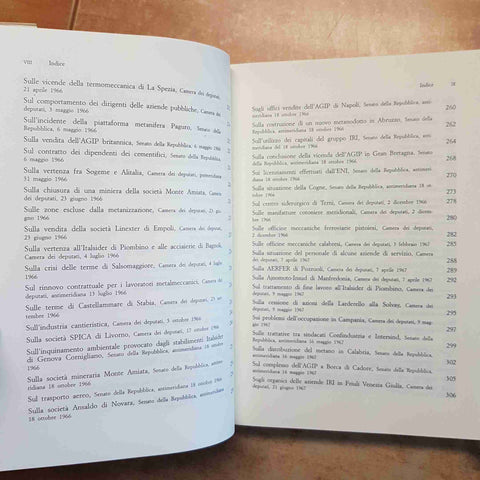 VIII Indice
Sulle vicende della termomeccanica di La Spezia, Camera dei deputati,
21 aprile 1966
Sul comportamento dei dirigenti delle aziende pubbliche, Camera dei
deputati, 3 maggio 1966
Sull'incidente della piattaforma metanifera Paguro, Senato della
Repubblica, 6 maggio 1966
Sulla vendita dell'AGIP britannica, Senato della Repubblica, 6 maggio 1966
Sul contratto dei dipendenti dei cementifici, Senato della Repubblica,
6 maggio 1966
Sulla vertenza fra Sogeme e Alitalia, Camera dei deputati, pomeridiana
31 maggio 1966
Sulla chiusura di una miniera della società Monte Amiata, Camera dei
deputati, 23 giugno 1966
Sulle zone escluse dalla metanizzazione, Camera dei deputati, 23
giugno 1966
Sulla vendita della società Linester di Empoli, Camera dei deputati,
23 giugno 1966
Sulla vertenza all'Italsider di Piombino e alle acciaierie di Bagnoli,
Camera dei deputati, 4 luglio 1966
Sulla crisi delle terme di Salsomaggiore, Camera dei deputati, 4 luglio
1966
Sul rinnovo contrattuale per i lavoratori metalmeccanici, Camera dei
deputati, antimeridiana 13 luglio 1966
Sulle terme di Castellammare di Stabia, Camera dei deputati,
1966
Sull'industria cantieristica, Camera dei deputati, 3 ottobre 1966
Sulla società SPICA di Livorno, Camera dei deputati, 17 ottobre 1966
Sull'inquinamento ambientale provocato dagli stabilimenti Italsider
di Genova Cornigliano, Senato della Repubblica, antimeridiana 18 ottobre
1966
Sulla società mineraria Monte Amiata, Senato della Repubblica, antime-
ridiana 18 ottobre 1966
Sul trasporto aereo, Senato della Repubblica, antimeridiana 18 ottobre 1966
Sulla società Ansaldo di Novara, Senato della Repubblica, antimeridiana
18 ottobre 1966
Indice IX
Sugli uffici vendite dell'AGIP di Napoli, Senato della Repubblica, anti-
meridiana 18 ottobre 1966 260
Sulla costruzione di un nuovo metanodotto in Abruzzo, Senato della
Repubblica, antimeridiana 18 ottobre 1966
Sull'utilizzo dei capitali del gruppo IRI, Senato della Repubblica, anti-
meridiana del 18 ottobre 1966
Sulla conclusione della vicenda dell'AGIP in Gran Bretagna, Senato della
Repubblica, antimeridiana 18 ottobre 1966 268
Sui licenziamenti effettuati dall'ENI, Senato della Repubblica, antimeri-
diana 18 ottobre 1966
Sulla situazione della Cogne, Senato della Repubblica, antimeridiana 18 ot-
tobre 1966
Sul centro siderurgico di Terni, Camera dei deputati, 2 dicembre 1966 278
Sulle manifatture cotoniere meridionali, Camera dei deputati, 2 dicem-
bre 1966
Sulle officine meccaniche ferroviarie pistoiesi, Camera dei deputati,
2 dicembre 1966
Sulle officine meccaniche calabresi, Camera dei deputati, 3 febbraio 1967
Sulla situazione del personale di alcune aziende di servizio, Camera dei
deputati, 7 aprile 1967
Sulla AERFER di Pozzuoli, Camera dei deputati, 7 aprile 1967 289
Sulla Ajnomoto-Insud di Manfredonia, Camera dei deputati, 7 aprile 1967
Sul trattamento di fine lavoro all'Italsider di Piombino, Camera dei
deputati, 9 maggio 1967 293
Sulla cessione di azioni della Larderello alla Solvay, Camera dei
deputati, 9 maggio 1967 295
Sui problemi dell'occupazione in Campania, Camera dei deputati, 9 mag-
gio 1967
Sulle trattative tra sindacati Confindustria e Intersind, Senato della
Repubblica, antimeridiana 16 maggio 1967
Sulla distribuzione del metano in Calabria, Senato della Repubblica,
antimeridiana 16 maggio 1967 302
Sul complesso dell'AGIP a Borca di Cadore, Senato della Repubblica,
antimeridiana 16 maggio 1967 305
Sugli organici delle aziende IRI in Friuli Venezia Giulia, Camera dei
deputati, 21 giugno 1967 306